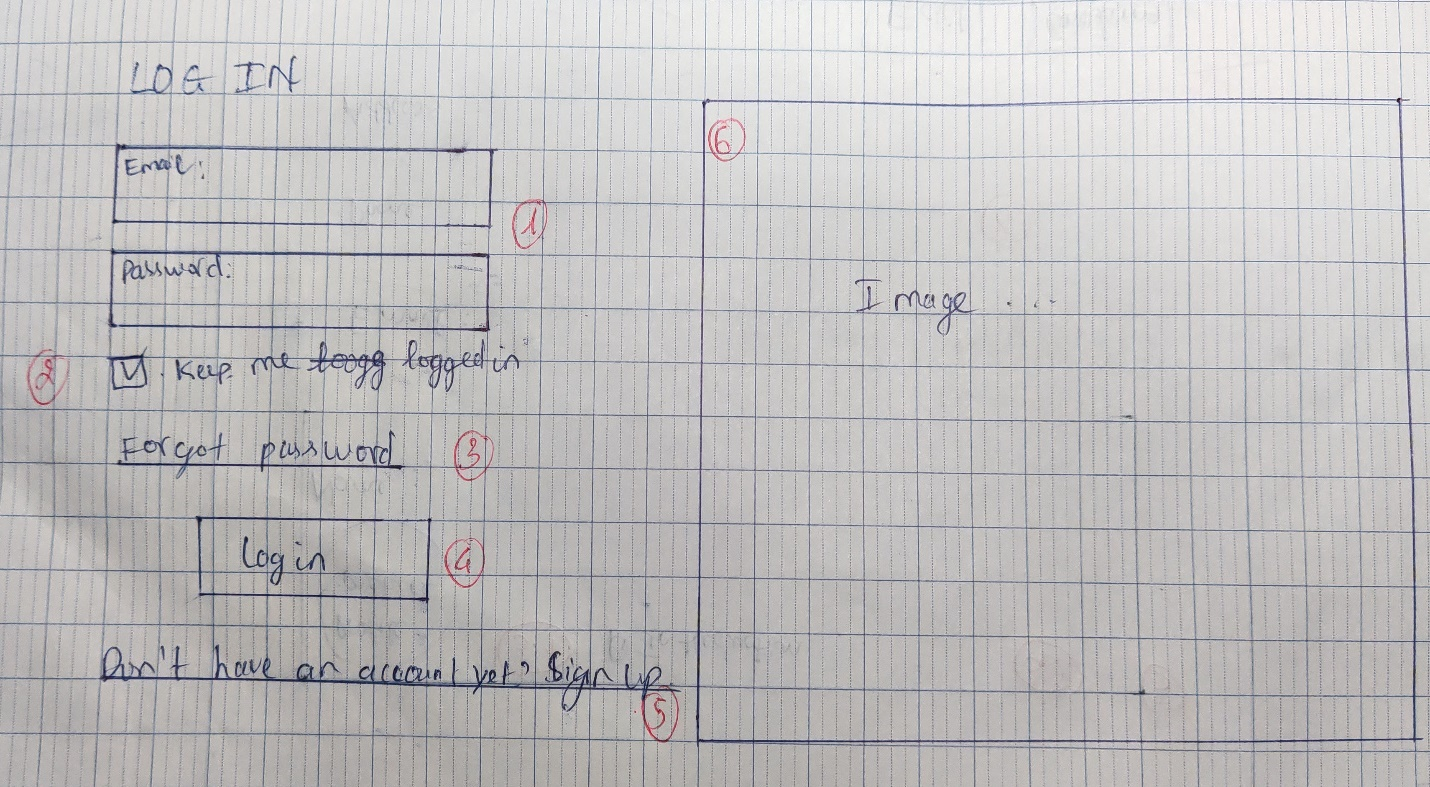 LOG IN
Email:
①
Password:
② ☑. Keep me loogg logged in
Forgot password ③
Log in ④
Don't have an account yet? Sign up.
⑤
⑥
Image ...